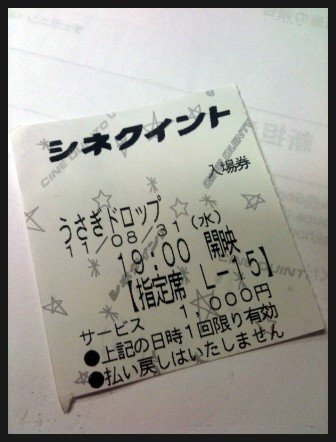 シネクイント
入場券
うさぎドロップ
11/08/31(水)
19:00 開映
【指定席 L-15】
サービス 1,000円
●上記の日時1回限り有効
●払い戻しはいたしません